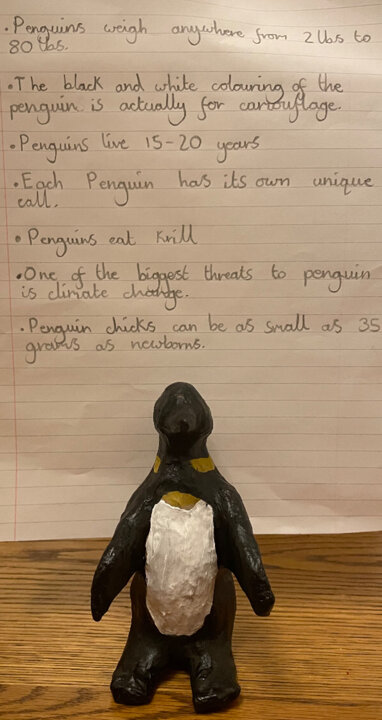 •Penguins weigh anywhere from 2 lbs to
80 lbs.
•The black and white colouring of the
penguin is actually for camouflage.
•Penguins live 15-20 years
•Each Penguin has its own unique
call.
•Penguins eat Krill
•One of the biggest threats to penguin
is climate change.
•Penguin chicks can be as small as 35
grams as newborns.